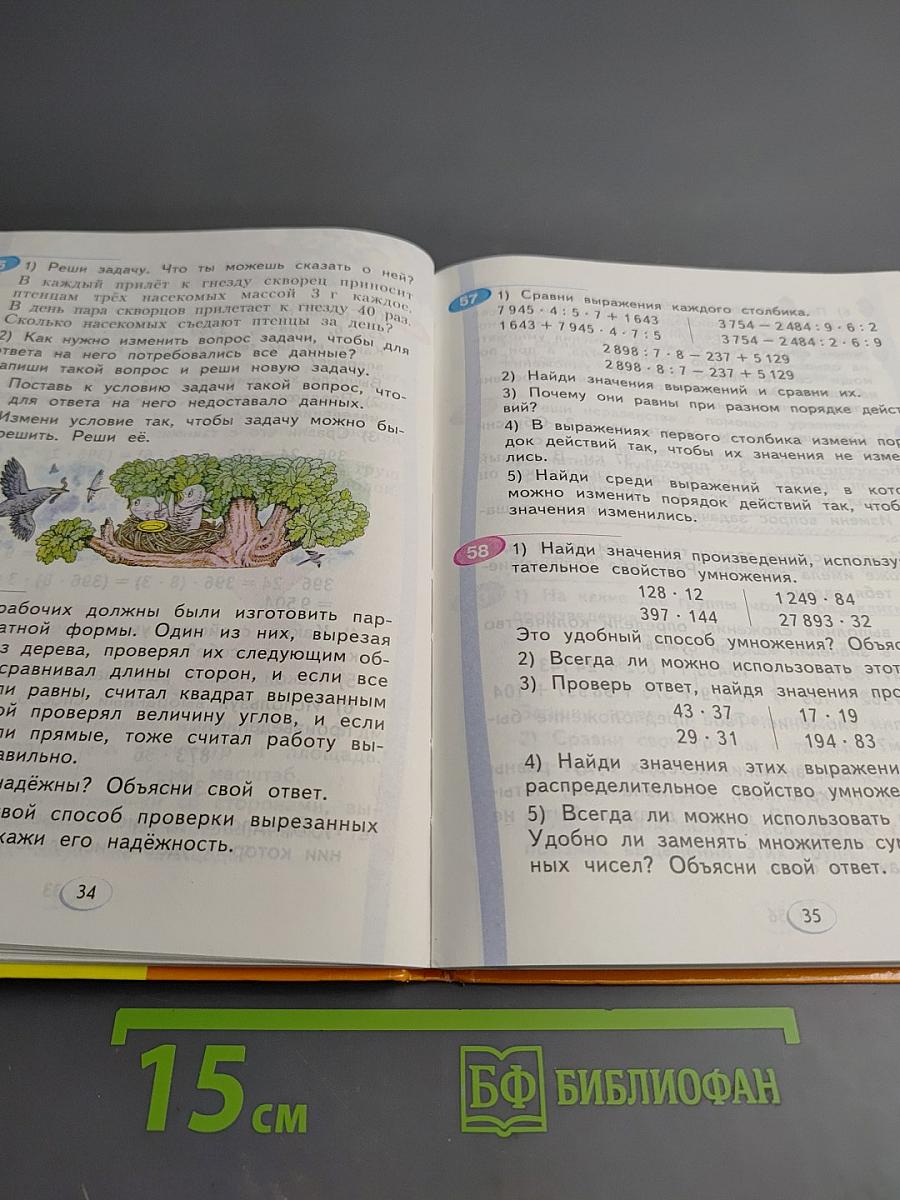 1) Реши задачу. Что ты можешь сказать о ней?
В каждый прилёт к гнезду скворец приносит
птенцам трёх насекомых массой 3 г каждое.
В день пара скворцов прилетает к гнезду 40 раз.
Сколько насекомых съедают птенцы за день?
2) Как нужно изменить вопрос задачи, чтобы для
ответа на него потребовались все данные?
апиши такой вопрос и реши новую задачу.
Поставь к условию задачи такой вопрос, что-
для ответа на него недоставало данных.
Измени условие так, чтобы задачу можно бы-
решить. Реши её.
рабочих должны были изготовить пар-
атной формы. Один из них, вырезая
з дерева, проверял их следующим об-
сравнивал длины сторон, и если все
ли равны, считал квадрат вырезанным
ой проверял величину углов, и если
ли прямые, тоже считал работу вы-
авильно.
надёжны? Объясни свой ответ.
вой способ проверки вырезанных
кажи его надёжность.
34
57 1) Сравни выражения каждого столбика.
7 945 · 4 : 5 · 7 + 1 643 3 754 – 2 484 : 9 · 6 : 2
1 643 + 7 945 · 4 · 7 : 5 3 754 – 2 484 : 2 · 6 : 9
2 898 : 7 · 8 – 237 + 5 129
2 898 · 8 : 7 – 237 + 5 129
2) Найди значения выражений и сравни их.
3) Почему они равны при разном порядке дейст
вий?
4) В выражениях первого столбика измени пор
док действий так, чтобы их значения не изме
лись.
5) Найди среди выражений такие, в кото
можно изменить порядок действий так, чтоб
значения изменились.
58 1) Найди значения произведений, использу
тательное свойство умножения.
128 · 12 1 249 · 84
397 · 144 27 893 · 32
Это удобный способ умножения? Объяс
2) Всегда ли можно использовать этот
3) Проверь ответ, найдя значения про
43 · 37 17 · 19
29 · 31 194 · 83
4) Найди значения этих выражени
распределительное свойство умноже
5) Всегда ли можно использовать
Удобно ли заменять множитель су
ных чисел? Объясни свой ответ.
35
15 см
БФ БИБЛИОФАН